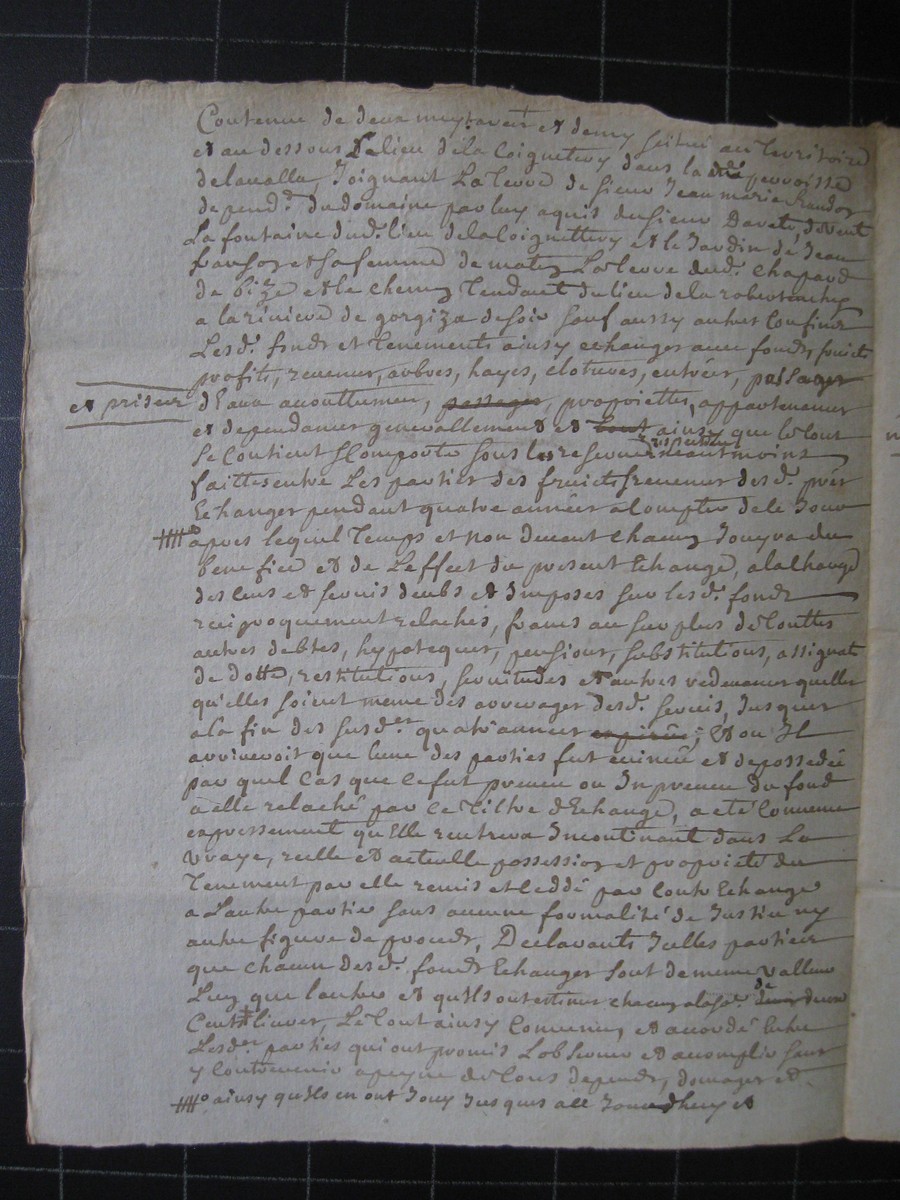 Contenue de deux meytereit et demy scitué au territoire
et au dessous le lieu de la Coignettery dans la dte perroisse
delavalla, Joignant La terre de sieur Jean marie
depend.t du domaine par luy aquis du sieur devent
La fontaine dud. lieu de la Coignettery et le Jardin de Jean
et sa femme de matin La terre dud. Chapard
de bize et le chemin Tendant du lieu de la
a la riviere de de soir sauf aussy autres Confins
Lesd. fonds et Tenements ainsy echanges avec fonds, fruicts
profits, revenus, arbres, hayes, clotures, entrées, passages
et priseu d'Eaux accouttumés, passages, proprietes, appartenances
et dependances generallement et tout ainsy que le tout
Se Contient & Comporte sous les reserves respectives neantmoins
faittes entre Les parties des fruicts & revenus desd. prés
Echanges pendant quatre années a Compter de le Jour
apres lequel Temps et non devant chacun Jouyra du
benefice et de Leffect du present Echange, a la Charge
des Cens et servis deubs et Imposes sur lesd. fonds
reciproquement relachés, francs au surplus de touttes
autres debtes, hypoteques, pensions, substitutions, assignat
de dotte, restitutions, servitudes et autres redevances quelles
qu'elles soient meme des arrerages desd. servis, Jusques
a la fin des susd.es quatre années expirée; Et ou Il
arriveroit que lune des parties fut evincée et depossedée
par quel Cas que ce fut preveu ou Inpreveu du fond
a elle relaché par ce Tiltre d'Echange, a eté Convenu
expressement qu'Elle rentrera Incontinant dans La
vraye, reelle et actuelle possession et proprieté du
Tenement par elle remis et ceddé par Contr'Echange
a Lautre partie sans aucune formalité de Justice ny
autre figure de procedr, Declarants Icelles parties
que chacun desd. fonds Echanges sont de meme valleur
Lun que lautre et qu'Ils ont estimer chacun a la so.e de deux
Cents livres, Le tout ainsy Convenu, et accordé Entre
Lesd.es parties qui ont promis Lobserver et accomplir sans
y Contrevenir a peyne de tous depends, domages et
ainsy qu'Ils en ont Jouy Jusques a ce Jourdhuy et